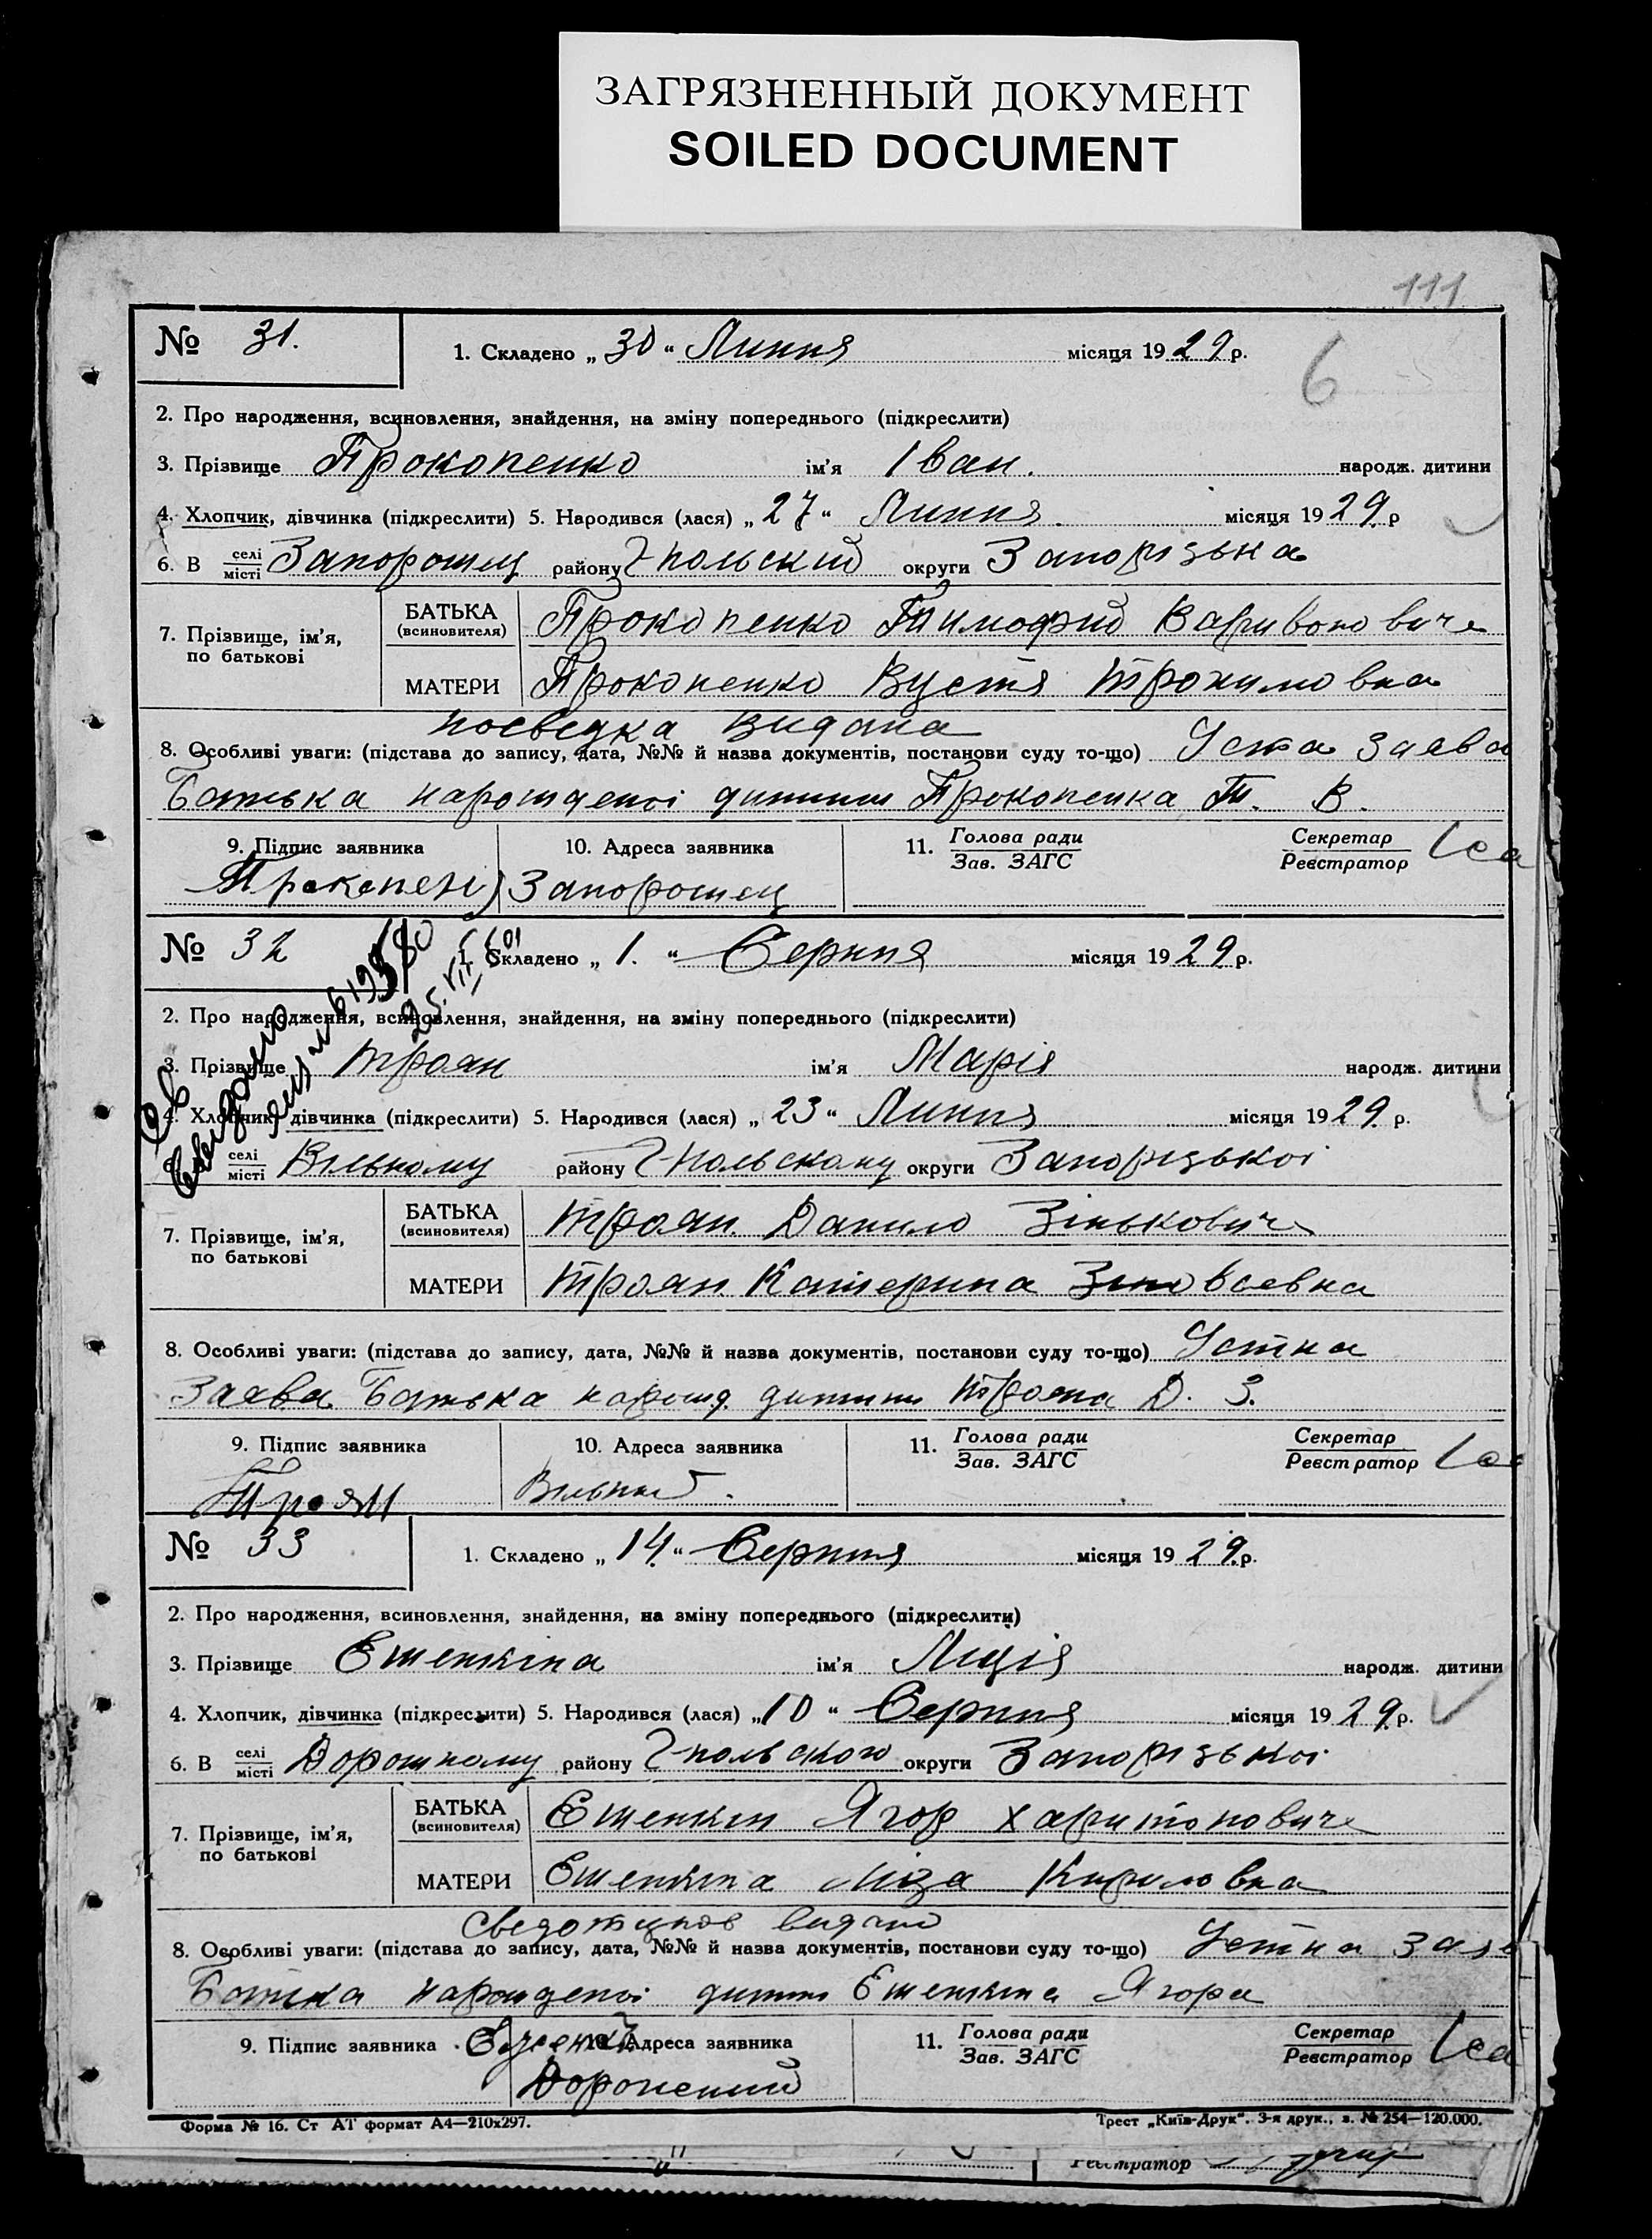 ЗАГРЯЗНЕННЫЙ ДОКУМЕНТ
SOILED DOCUMENT
111
№ 31.
1. Складено „ 30 “ Липня місяця 19 29 р.
6
2. Про народження, всиновлення, знайдення, на зміну попереднього (підкреслити)
3. Прізвище Прокопенко ім’я Іван. народж. дитини
4. Хлопчик, дівчинка (підкреслити) 5. Народився (лася) „ 27 “ Липня місяця 19 29 р
6. В селі місті Запорожец району Г-польский округи Запорізька
7. Прізвище, ім’я, по батькові
БАТЬКА (всиновителя) Прокопенко Тимофий Варивонович
МАТЕРИ Прокопенко Вустя Трохимовна
посведка видана
8. Особливі уваги: (підстава до запису, дата, №№ й назва документів, постанови суду то-що) Усна заява
Батька нарожденоі дитини Прокопенка Т. В.
9. Підпис заявника 10. Адреса заявника 11. Голова ради Зав. ЗАГС Секретар Реєстратор
Запорожец
№ 32
1. Складено „ 1. “ Серпня місяця 19 29 р.
2. Про народження, всиновлення, знайдення, на зміну попереднього (підкреслити)
3. Прізвище Троян ім’я Марія народж. дитини
4. Хлопчик, дівчинка (підкреслити) 5. Народився (лася) „ 23 “ Липня місяця 19 29 р.
селі місті Вільному району Г-польскому округи Запорізькоі
7. Прізвище, ім’я, по батькові
БАТЬКА (всиновителя) Троян Данило Зінькович
МАТЕРИ Троян Катерина
8. Особливі уваги: (підстава до запису, дата, №№ й назва документів, постанови суду то-що) Устна
Заява Батька нарожд. дитини Трояна Д. З.
9. Підпис заявника 10. Адреса заявника 11. Голова ради Зав. ЗАГС Секретар Реєстратор
Троян
№ 33
1. Складено „ 14 “ Серпня місяця 19 29 р.
2. Про народження, всиновлення, знайдення, на зміну попереднього (підкреслити)
3. Прізвище Ешенкіна ім’я Лідія народж. дитини
4. Хлопчик, дівчинка (підкреслити) 5. Народився (лася) „ 10 “ Серпня місяця 19 29 р.
6. В селі місті Дорожному району Г-польского округи Запорізькоі
7. Прізвище, ім’я, по батькові
БАТЬКА (всиновителя) Ешенкин Ягор Харитонович
МАТЕРИ Ешенкіна Ліза Кириловна
видано
8. Особливі уваги: (підстава до запису, дата, №№ й назва документів, постанови суду то-що) Устна
Батька нарожденоі Ягора
9. Підпис заявника 10. Адреса заявника 11. Голова ради Зав. ЗАГС Секретар Реєстратор
Форма № 16. Ст АТ формат А4—210х297. Трест „Київ-Друк“. 3-я друк., з. № 254—120.000.
Реєстратор